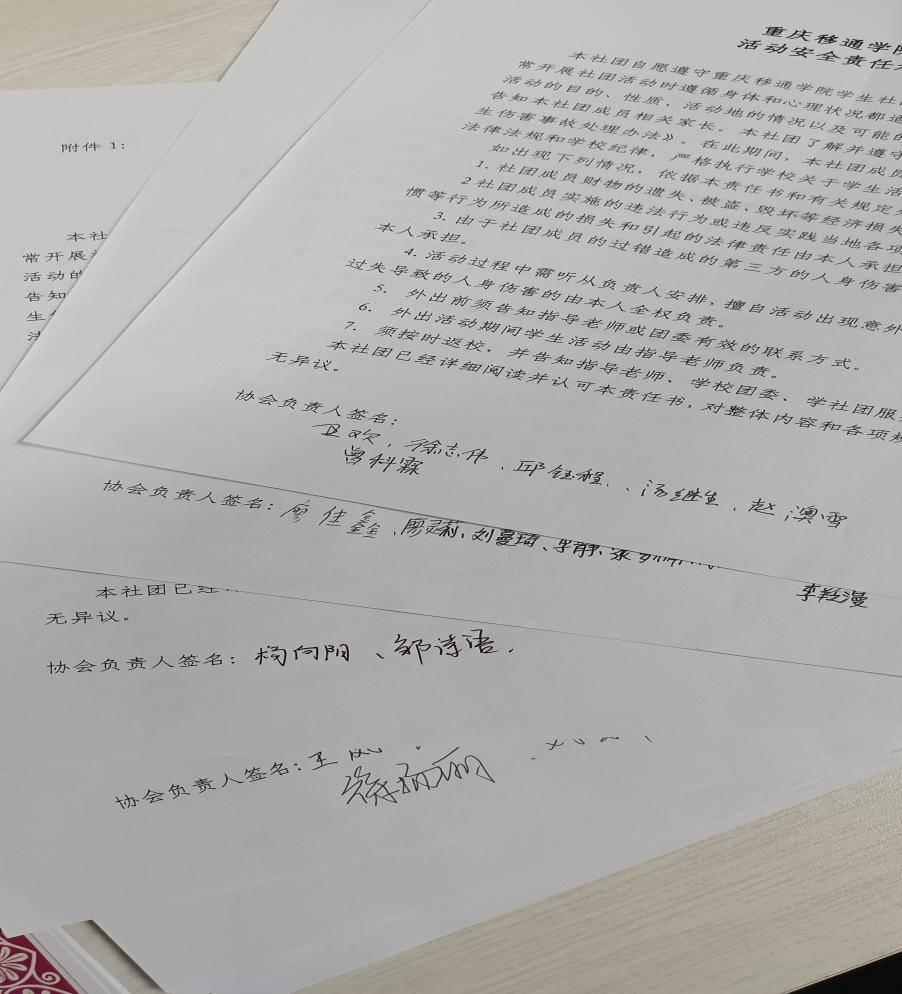 重庆移通学院
活动安全责任
本社团自愿遵守重庆移通学院学生社
常开展社团活动时遵循身体和心理状况都适
活动的目的、性质、活动地的情况以及可能的
告知本社团成员相关家长。本社团了解并遵守
生伤害事故处理办法》。在此期间，本社团成员
法律法规和学校纪律，严格执行学校关于学生活
如出现下列情况，依据本责任书和有关规定
1. 社团成员财物的遗失、被盗、毁坏等经济损失
2 社团成员实施的违法行为或违反实践当地各项
惯等行为所造成的损失和引起的法律责任由本人承担
3. 由于社团成员的过错造成的第三方的人身伤害
本人承担。
4. 活动过程中需听从负责人安排，擅自活动出现意外
过失导致的人身伤害的由本人全权负责。
5. 外出前须告知指导老师或团委有效的联系方式。
6. 外出活动期间学生活动由指导老师负责。
7. 须按时返校，并告知指导老师、学校团委、学社团服
本社团已经详细阅读并认可本责任书，对整体内容和各项规
无异议。
协会负责人签名：
卫欢，徐志伟、邱钰程、汤继生、赵澳雪
曾科霖
附件 1：
本社
常开展
活动的
告知
生
法
协会负责人签名：廖佳鑫、廖灵莉、刘蔓琦、李静、张
李鞋漫
本社团已经
无异议。
协会负责人签名：杨向阳、邹诗语，
协会负责人签名：王